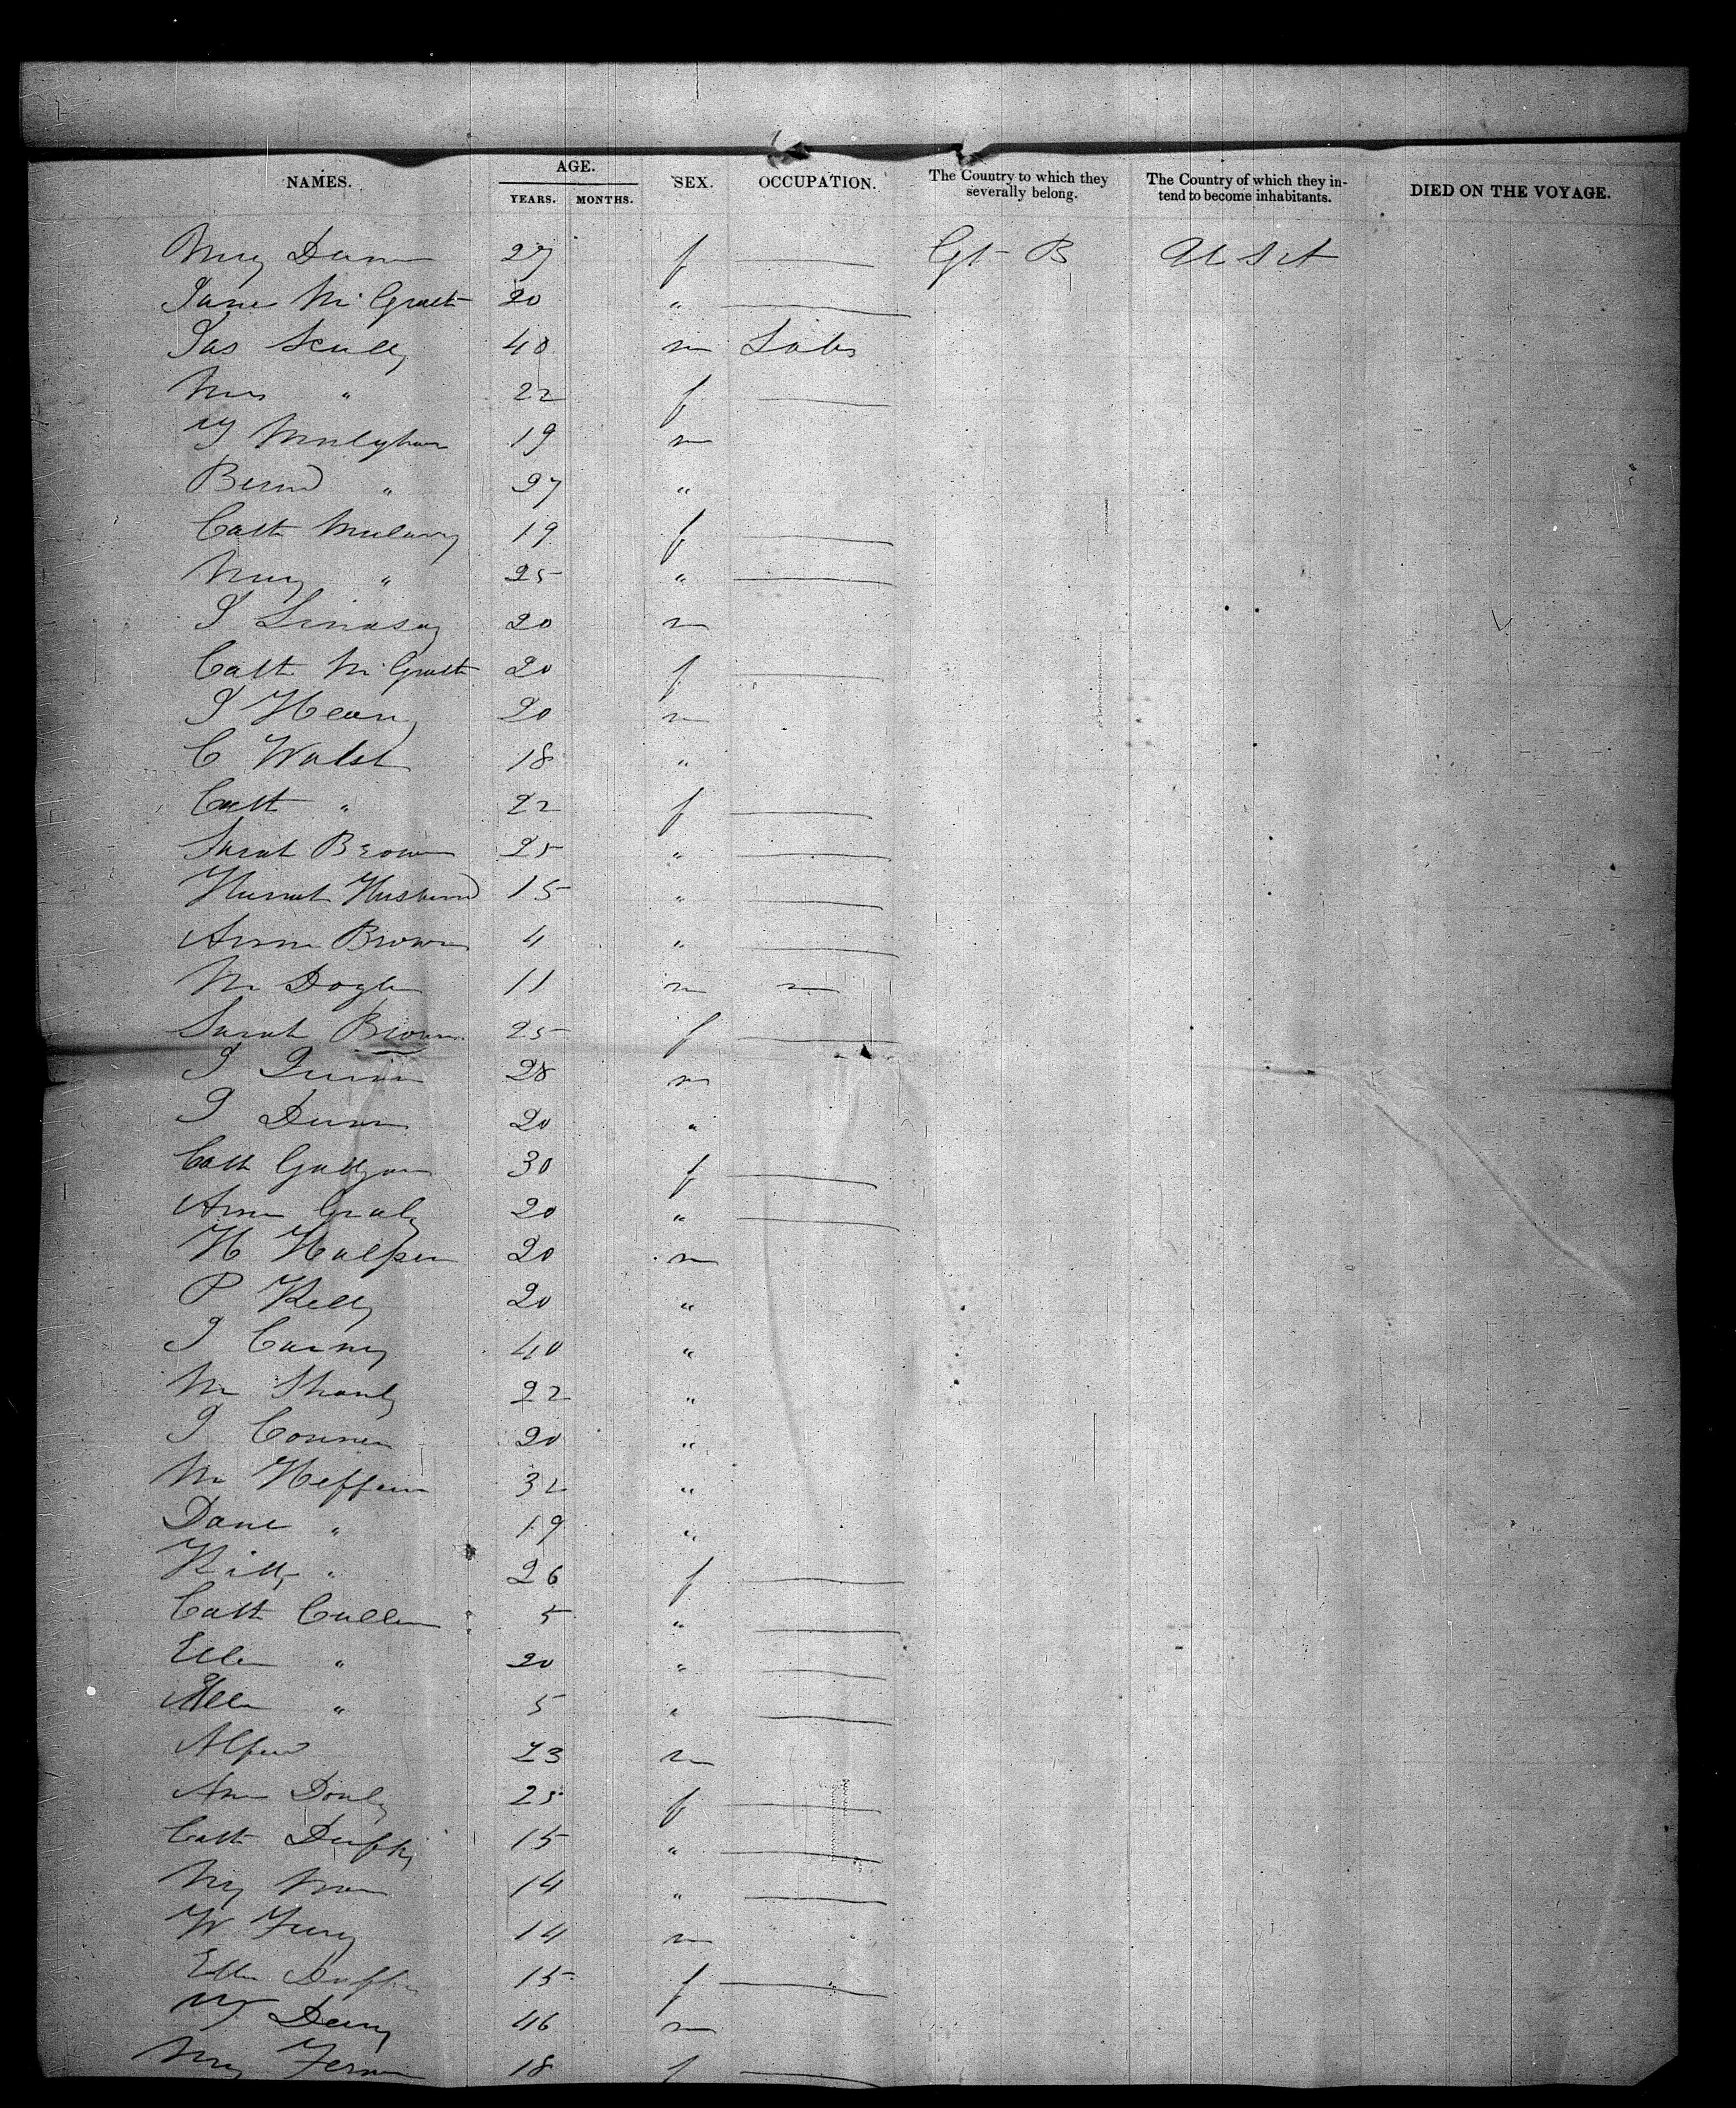 NAMES. AGE. SEX. OCCUPATION. The Country to which they severally belong. The Country of which they in-tend to become inhabitants. DIED ON THE VOYAGE.
YEARS. MONTHS.
Mary Dunn 27 f — Gt B U S A
Jane McGrath 20 " —
Jas Scully 40 m Labr
Mrs " 22 f —
19 m
Bernd " 27 "
Cath 19 f —
Mary " 25 " —
J Lindsay 20 m
Cath McGrath 20 f —
J Heany 20 m
C Walsh 18 "
Cath " 22 f —
Sarah Brown 25 " —
Harriet Husband 15 " —
Anne Brown 4 " —
M Doyle 11 m —
Sarah Brown 25 f —
J Quinn 28 m
J Dunn 20 "
Cath 30 f —
Ann 20 " —
H Halpin 20 m
P Kelly 20 "
J Carney 40 "
M Shanly 22 "
J Connen 20 "
M Heffern 32 "
Dane " 19 "
Kitty " 26 f —
Cath Cullen 5 " —
Ellen " 20 " —
" 5 " —
Alfred 23 m
Ann Donly 25 f —
Cath Duffy 15 " —
My 14 " —
W Fury 14 m
Ellen Duffy 15 f —
46 m
Mary 18 f —